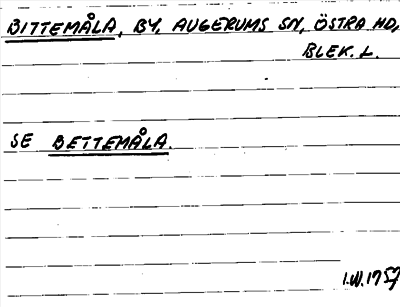 BITTEMÅLA, BY, AUGERUMS SN, ÖSTRA HD,
BLEK. L.
SE BETTEMÅLA.
I.W. 1957